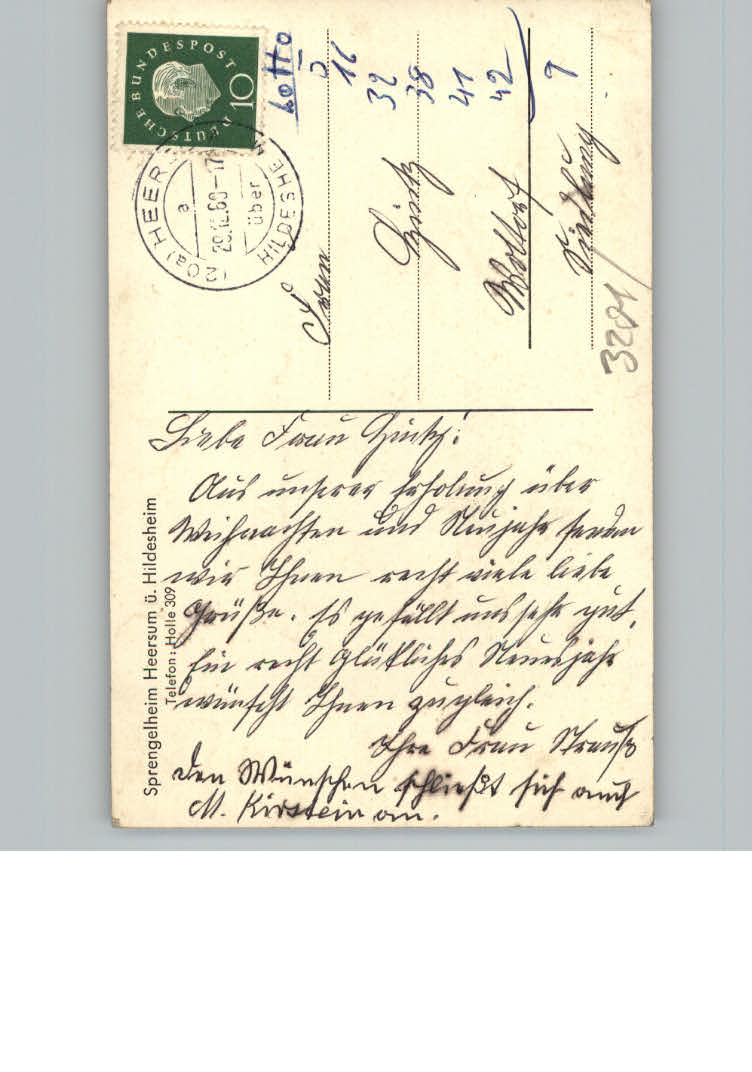 DEUTSCHE BUNDESPOST
10
(20a) HEERSUM
über HILDESHEIM
a
29.12.60-17
Lotto
5
16
32
38
41
42
9
Frau
Woltorf
Siedlung
3201
Sprengelheim Heersum ü. Hildesheim
Telefon: Holle 309
Liebe Frau
Aus unserer Erholung über
Weihnachten und Neujahr senden
wir Ihnen recht viele liebe
Grüße. Es gefällt uns sehr gut.
Ein recht glückliches Neuesjahr
wünscht Ihnen zugleich.
Ihre Frau Strauß
Den Wünschen schließt sich auch
M. Kirstein an.